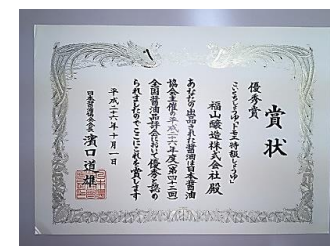 賞状
優秀賞
福山醸造株式会社殿
あなたの出品された醤油は日本醤油
協会主催の平成二十六年度(第四十二回)
全国醤油品評会において優秀と認め
られましたのでここにこれを賞します
平成二十六年十月一日
日本醤油協会会長 濱口道雄